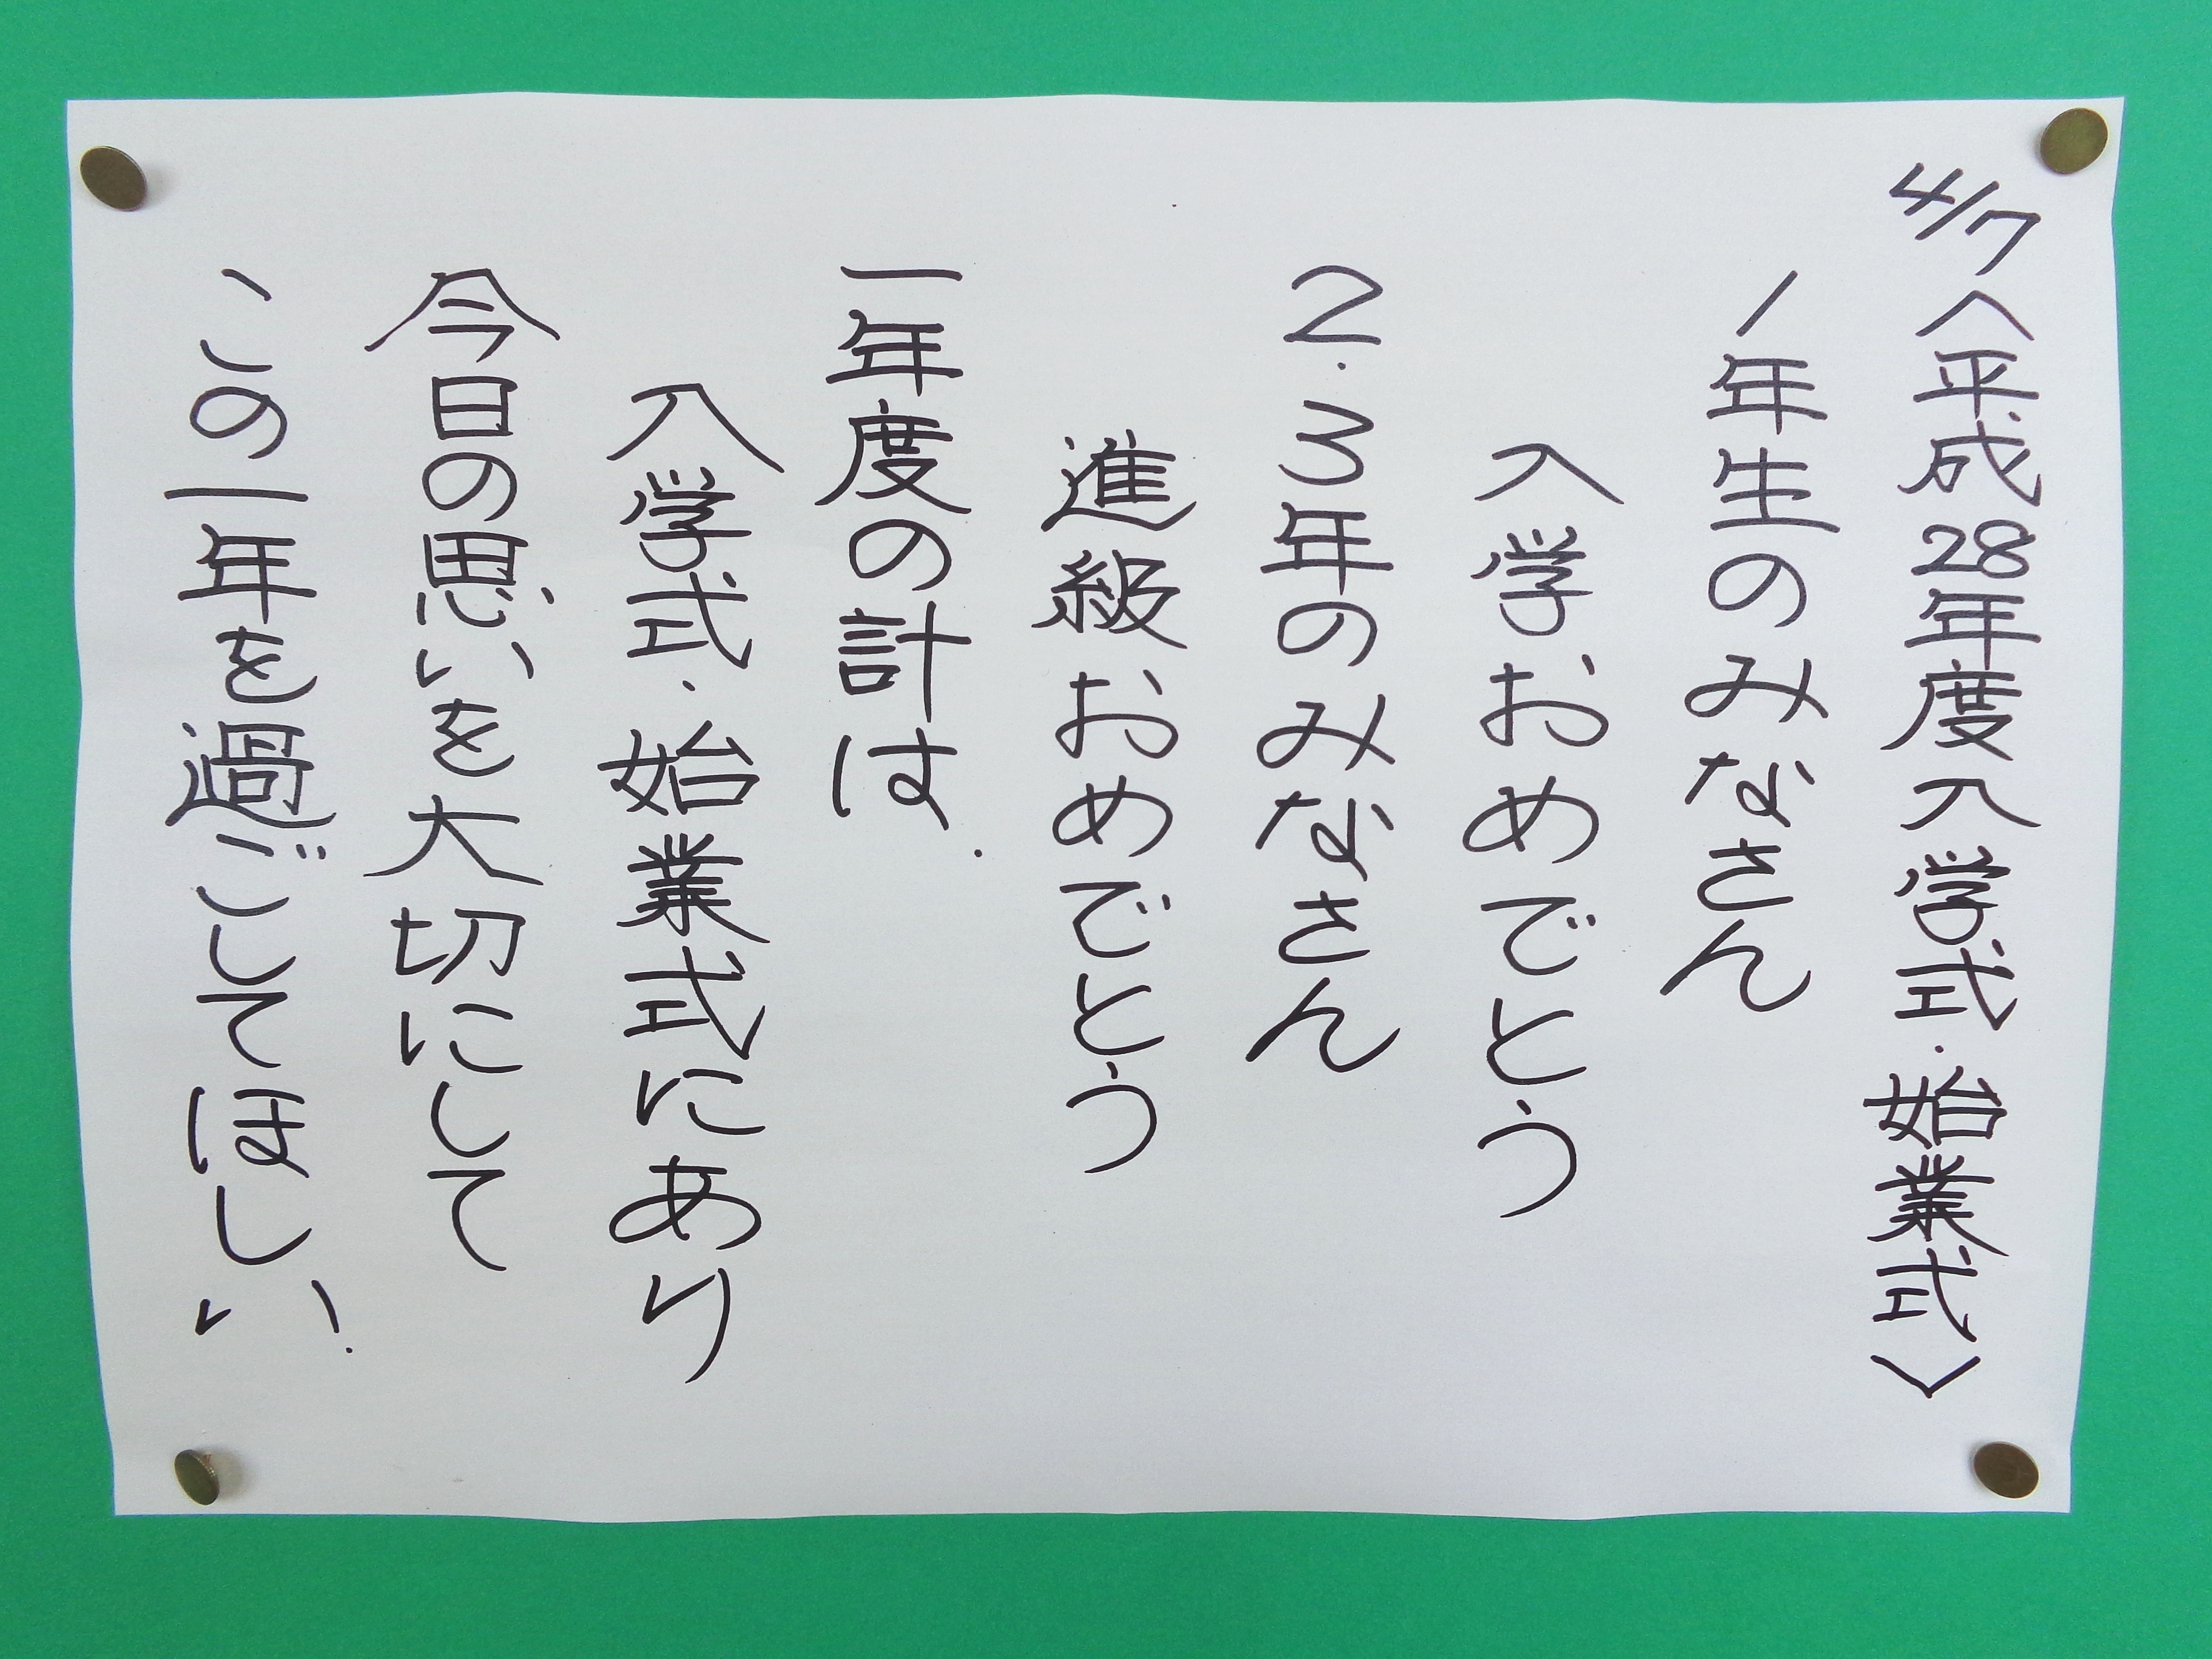 4/7〈平成28年度入学式・始業式〉
1年生のみなさん
入学おめでとう
2・3年のみなさん
進級おめでとう
一年度の計は.
入学式・始業式にあり
今日の思いを大切にして
この一年を過ごしてほしい.